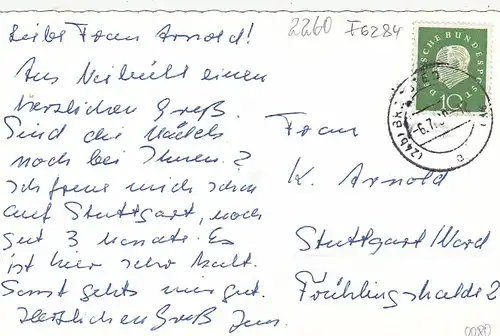 Liebe Frau Arnold!
Aus Neihütt einen
herzlichen Gruß.
Sind die Mädels
noch bei Ihnen?
Ich freue mich schon
auf Stuttgart, noch
gut 3 Monate. Es
ist hier sehr kalt.
Sonst gehts mir gut.
Herzlichen Gruß
2260 F6284
DEUTSCHE BUNDESPOST
10
(24b)
-6.7.
Frau
K. Arnold
Stuttgart Nord
Frühlingshalde 2
0080